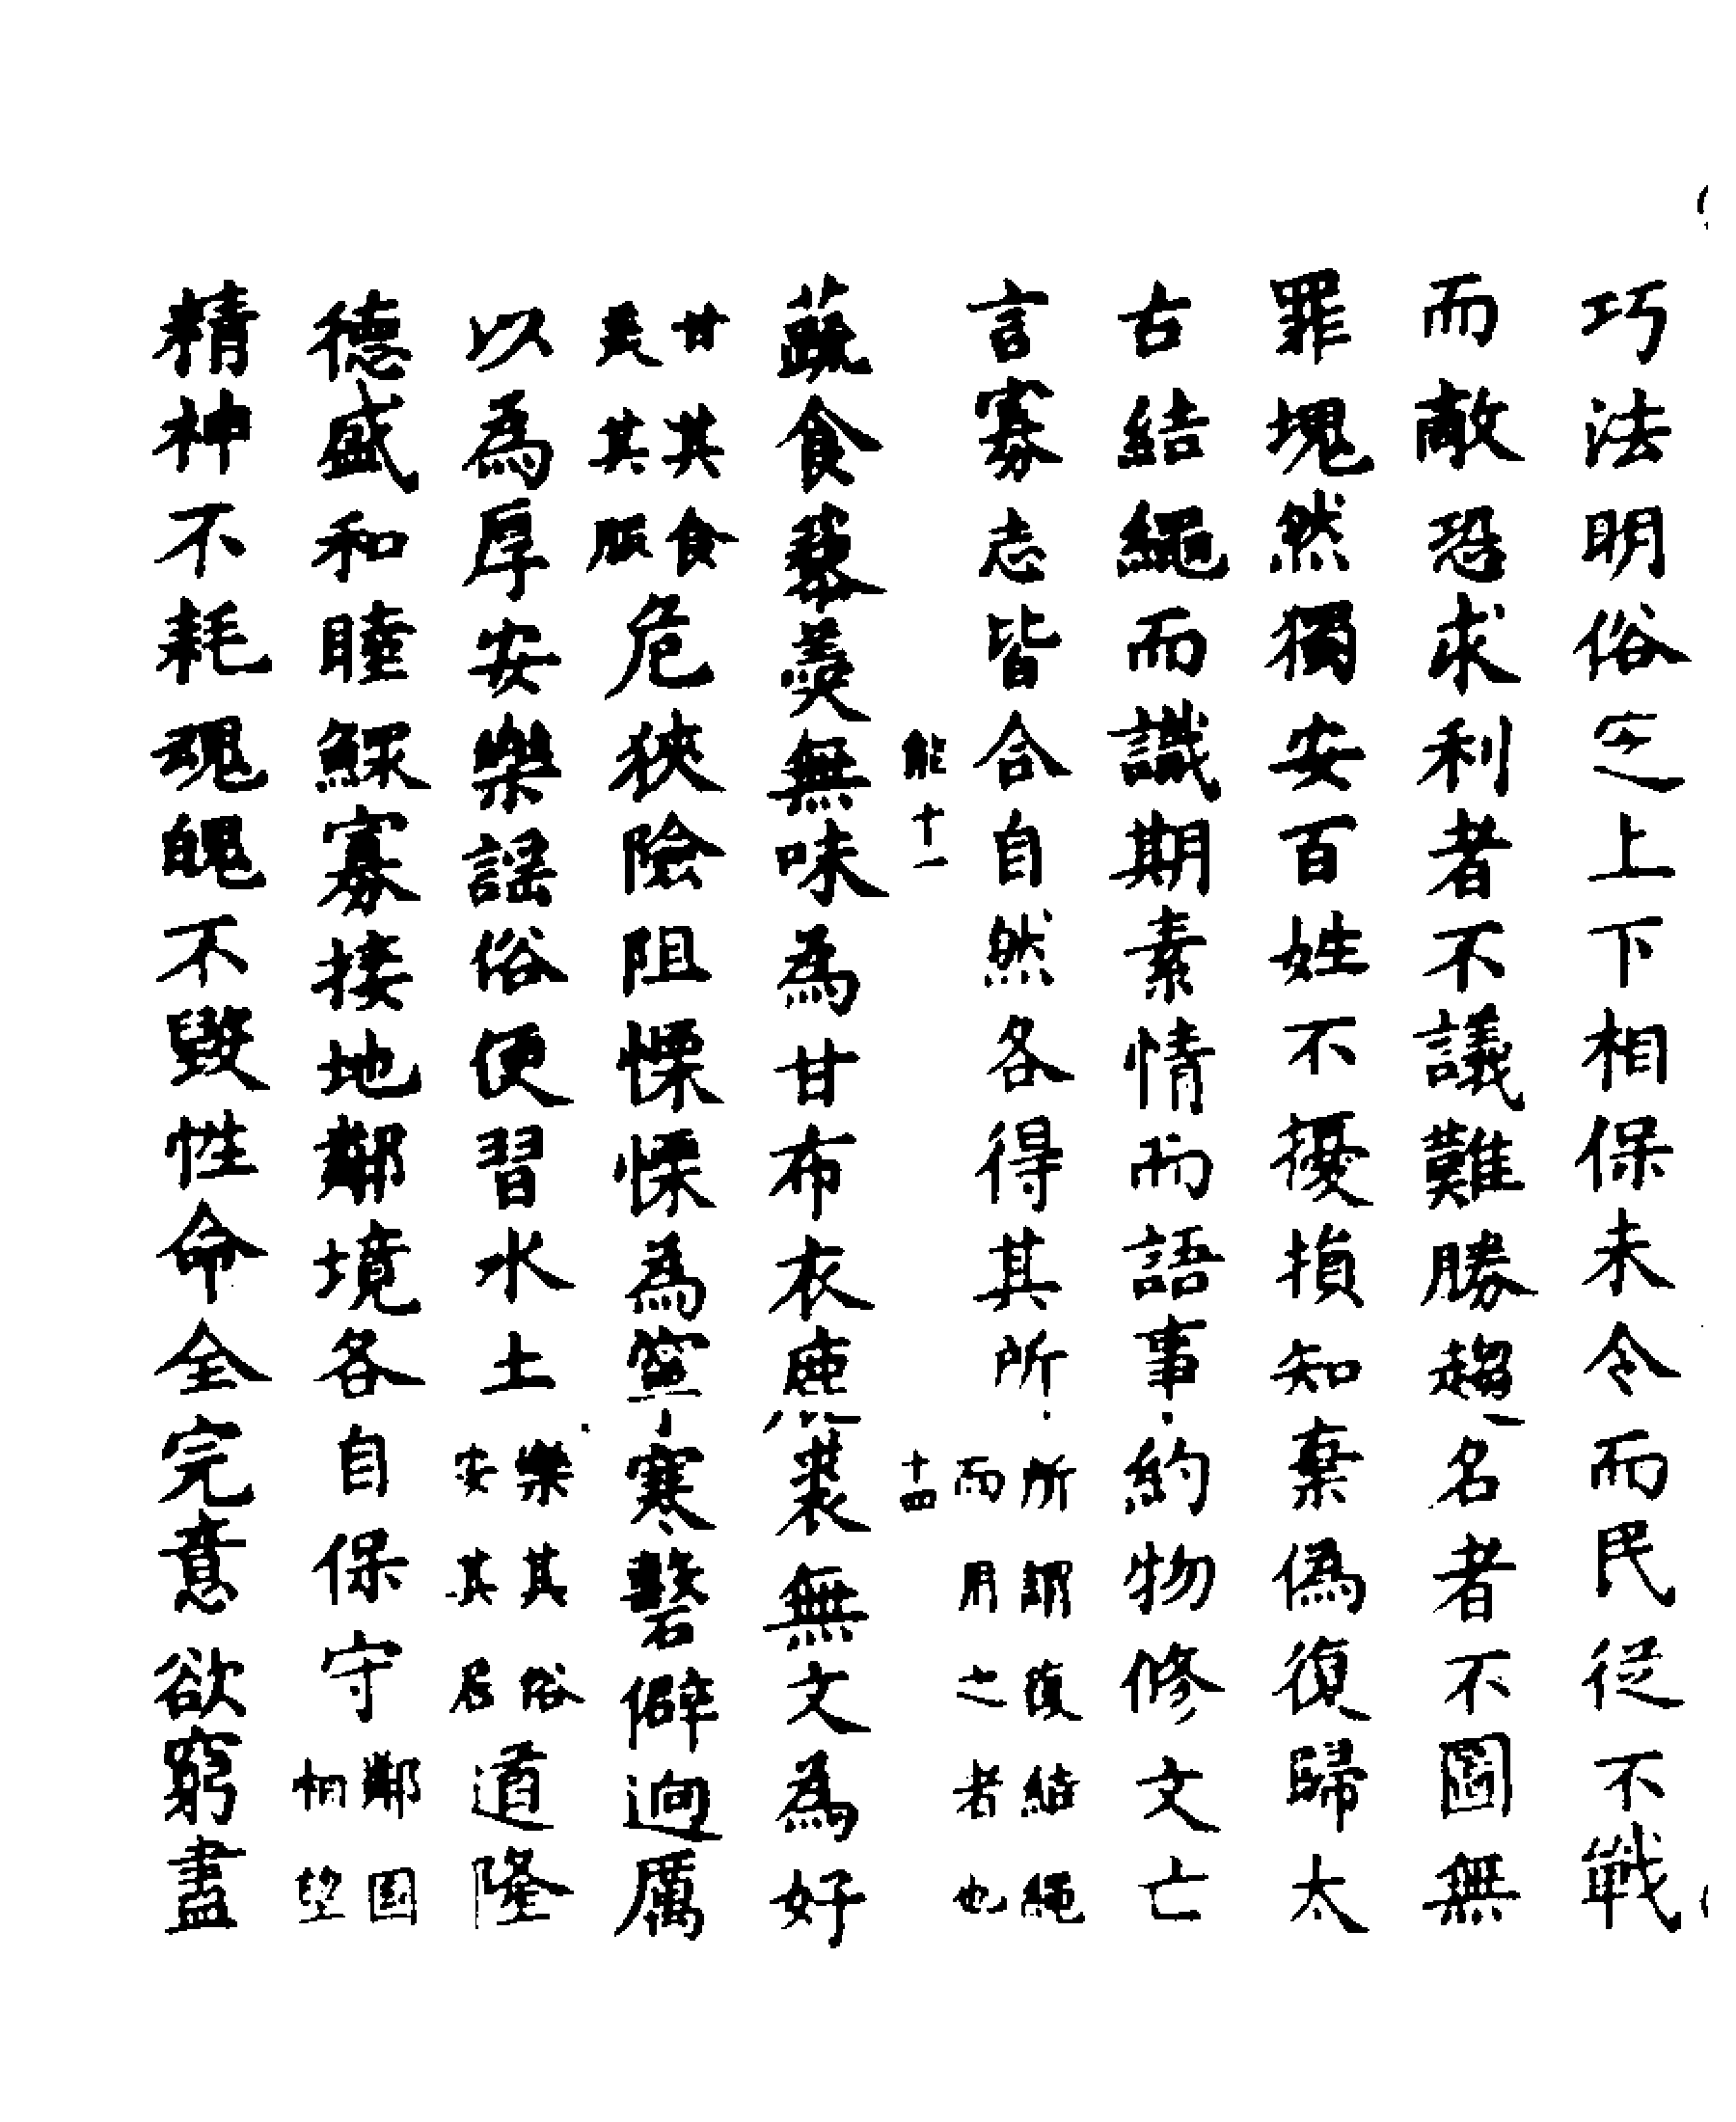 巧法明俗定上下相保未令而民從不戰
而敵恐求利者不議難勝趨名者不圖無
罪塊然獨安百姓不擾損知棄偽復歸太
古結繩而識期素情而語事約物修文亡
言寡志皆合自然各得其所所謂復結繩而用之者也
能十一
十四
蔬食藜羹無味為甘布衣鹿裘無文為好
甘其食美其服危狹險阻慄慄為寧寒磬僻迥厲
以為厚安樂謡俗便習水土樂其俗安其居道隆
德盛和睦鰥寡接地鄰境各自保守鄰国相望
精神不耗魂魄不毀性命全完意欲窮盡